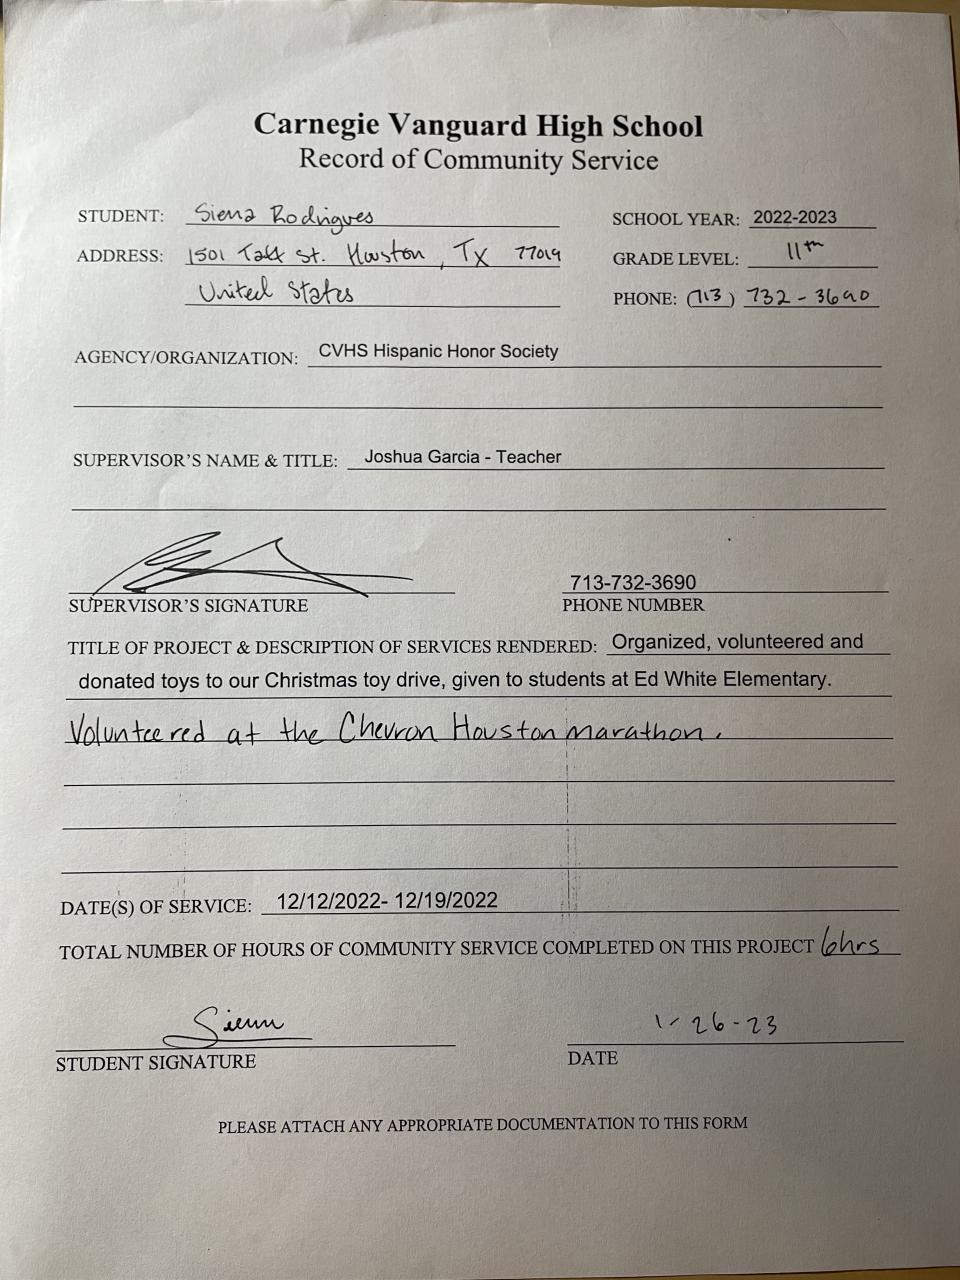 Carnegie Vanguard High School
Record of Community Service
STUDENT: Siena Rodrigues SCHOOL YEAR: 2022-2023
ADDRESS: 1501 Taft St. Houston, TX 77019 GRADE LEVEL: 11th
United States PHONE: (713) 732-3690
AGENCY/ORGANIZATION: CVHS Hispanic Honor Society
SUPERVISOR'S NAME & TITLE: Joshua Garcia - Teacher
713-732-3690
SUPERVISOR'S SIGNATURE PHONE NUMBER
TITLE OF PROJECT & DESCRIPTION OF SERVICES RENDERED: Organized, volunteered and
donated toys to our Christmas toy drive, given to students at Ed White Elementary.
Volunteered at the Chevron Houston marathon.
DATE(S) OF SERVICE: 12/12/2022- 12/19/2022
TOTAL NUMBER OF HOURS OF COMMUNITY SERVICE COMPLETED ON THIS PROJECT 6hrs
Siena 1-26-23
STUDENT SIGNATURE DATE
PLEASE ATTACH ANY APPROPRIATE DOCUMENTATION TO THIS FORM